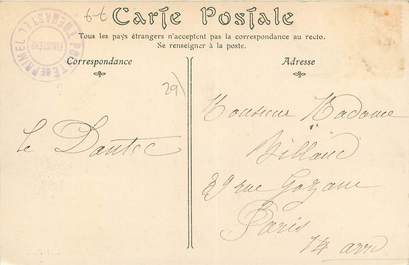 6-t
Carte Postale
Tous les pays étrangers n'acceptent pas la correspondance au recto.
Se renseigner à la poste.
Correspondance
Adresse
29
le Dantec
Monsieur Madame
Billand
39 rue Gazan
Paris
14 arr